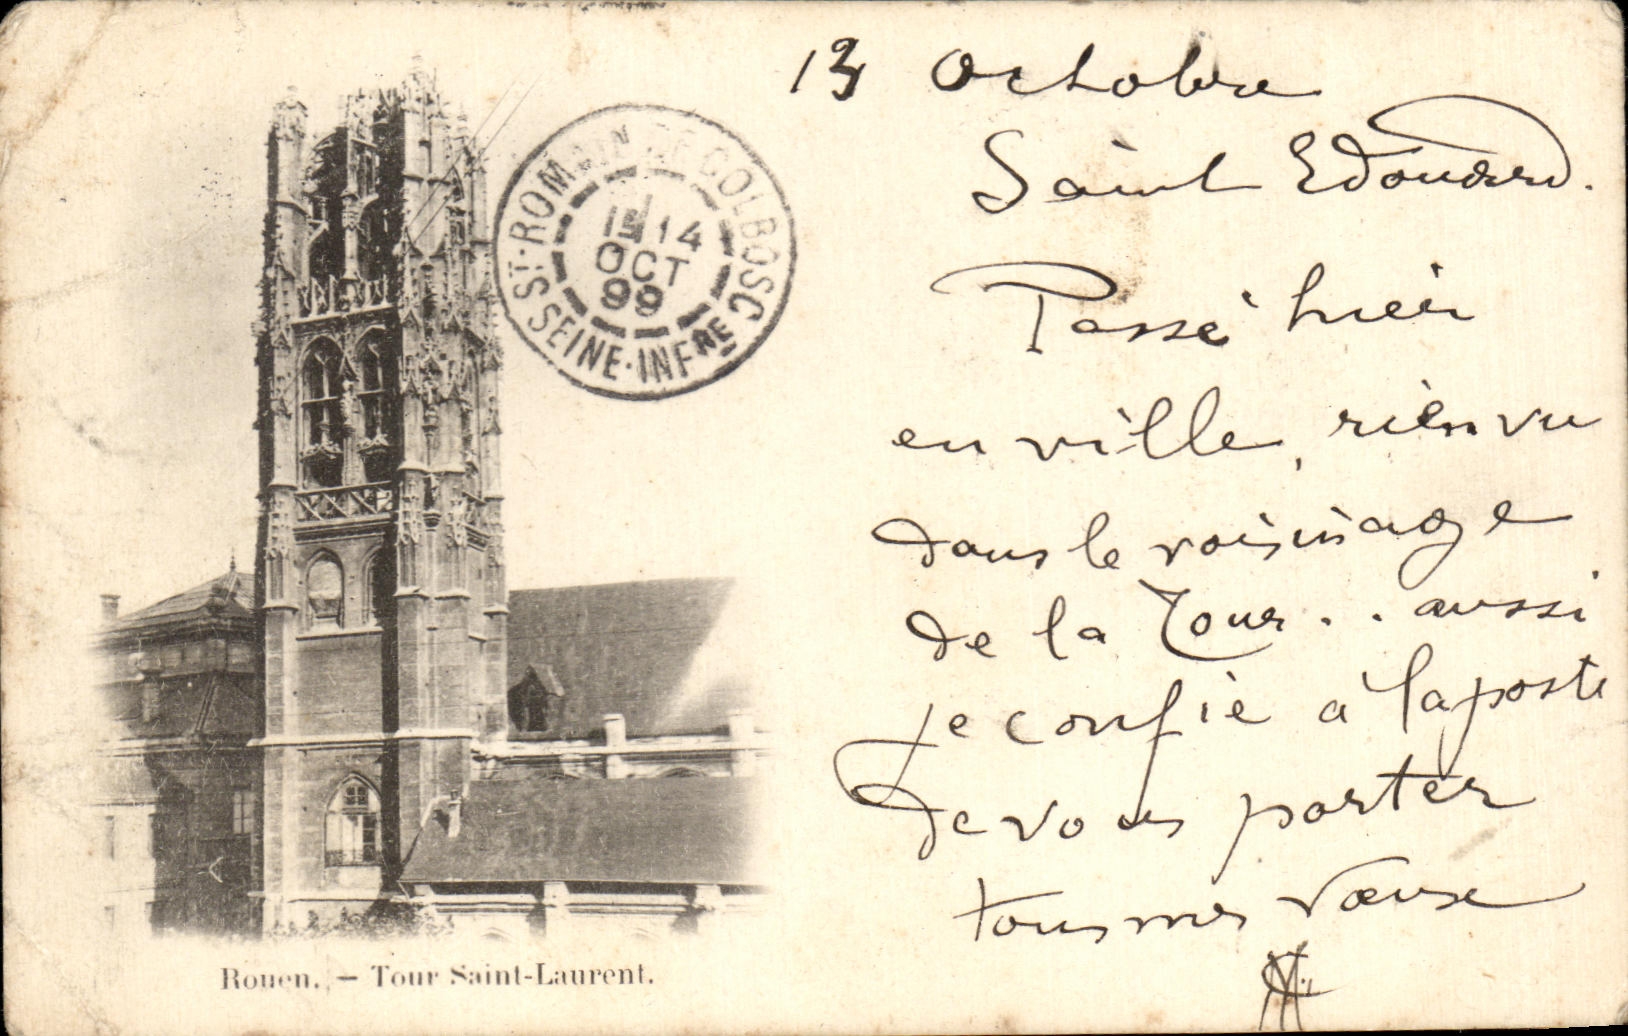 13 Octobre
Saint Edouard.
Passé hier
en ville, rien vu
dans le voisinage
de la Tour . . aussi
je confie à la poste
de vous porter
tous mes vœux
ST. ROMAIN DE COLBOSC
14
OCT
99
SEINE-INFRE
Rouen. — Tour Saint-Laurent.